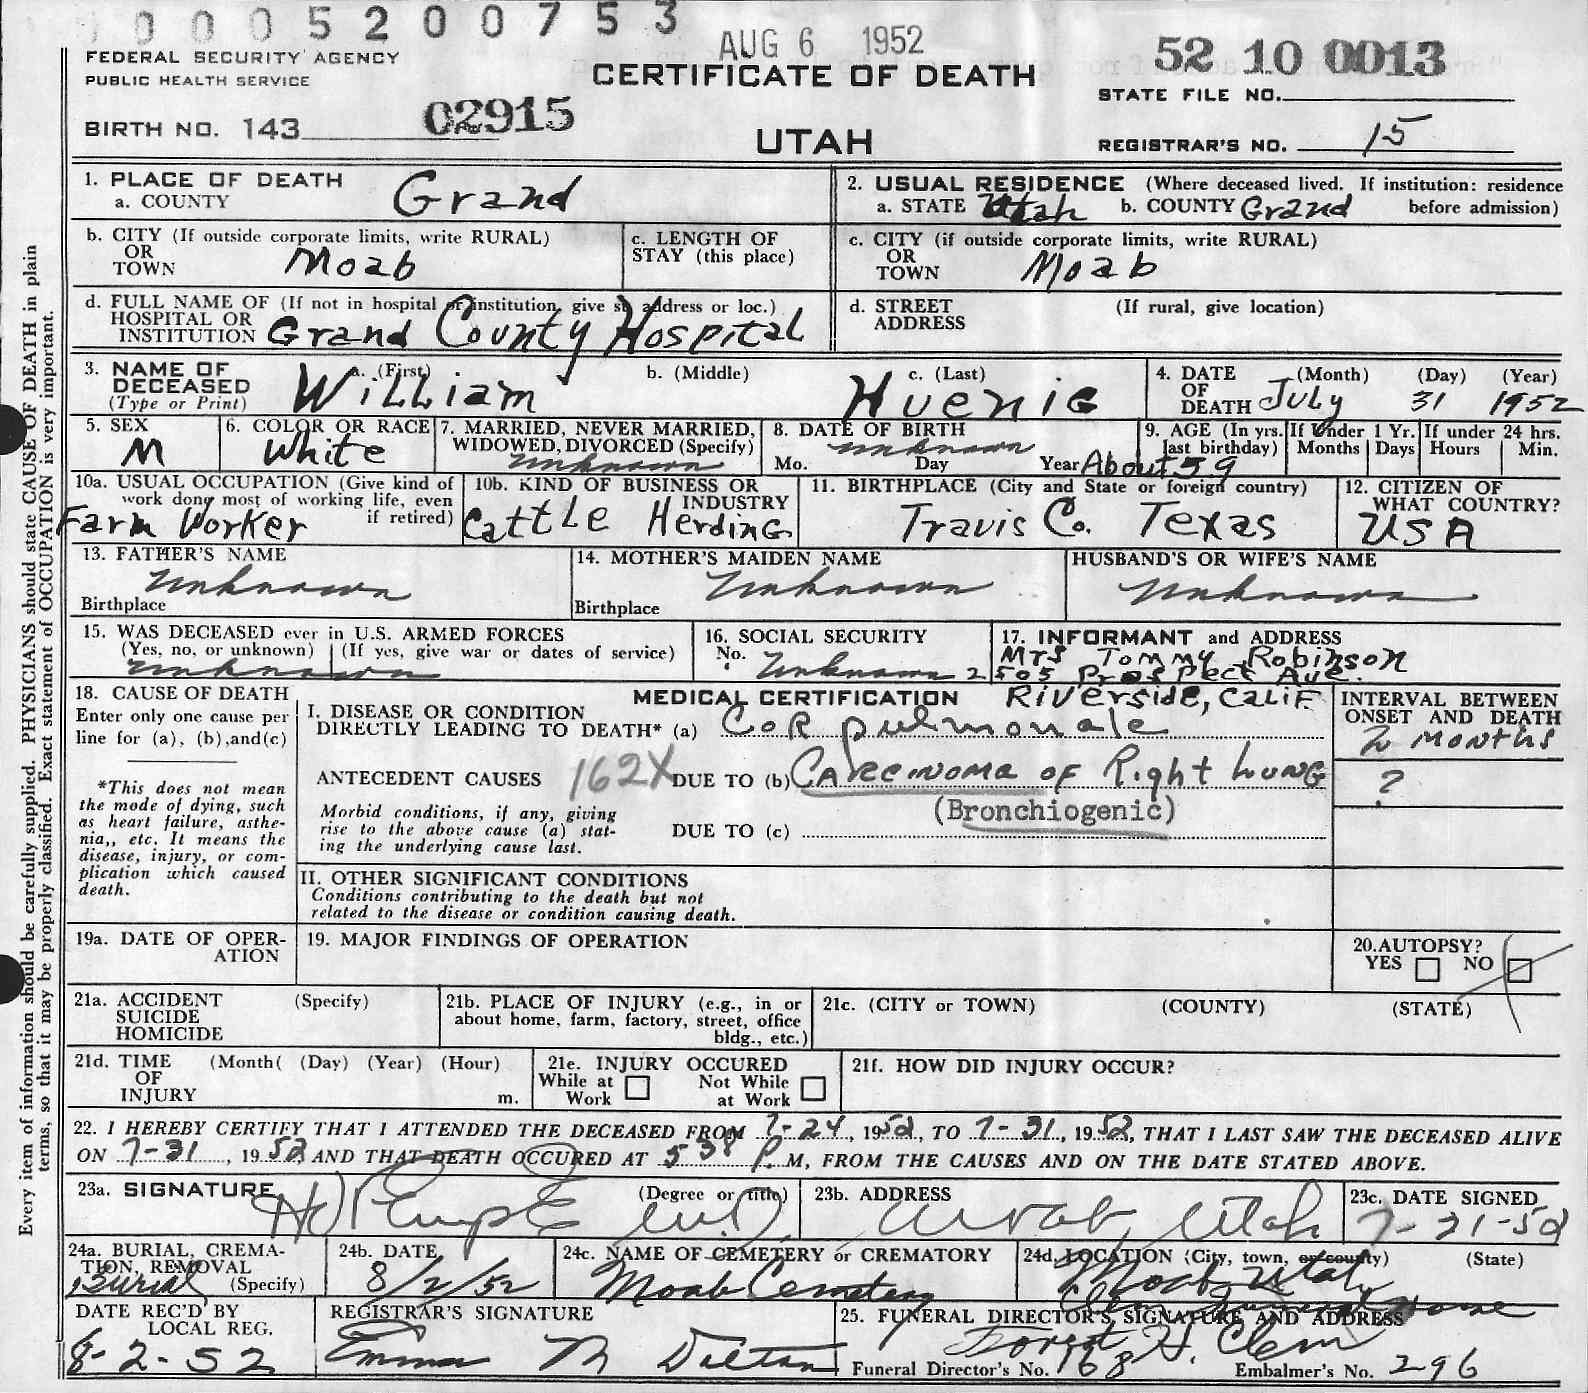 0 0 0 5 2 0 0 7 5 3
AUG 6 1952
52 10 0013
FEDERAL SECURITY AGENCY
PUBLIC HEALTH SERVICE
CERTIFICATE OF DEATH
STATE FILE NO.
BIRTH NO. 143 02915
UTAH
REGISTRAR'S NO. 15
1. PLACE OF DEATH
a. COUNTY Grand
2. USUAL RESIDENCE (Where deceased lived. If institution: residence
a. STATE Utah b. COUNTY Grand before admission)
b. CITY (If outside corporate limits, write RURAL)
OR
TOWN Moab
c. LENGTH OF
STAY (this place)
c. CITY (if outside corporate limits, write RURAL)
OR
TOWN Moab
d. FULL NAME OF (If not in hospital or institution, give st address or loc.)
HOSPITAL OR
INSTITUTION Grand County Hospital
d. STREET (If rural, give location)
ADDRESS
3. NAME OF
DECEASED
(Type or Print)
a. (First) b. (Middle) c. (Last)
William Huenie
4. DATE (Month) (Day) (Year)
OF
DEATH July 31 1952
5. SEX
M
6. COLOR OR RACE
White
7. MARRIED, NEVER MARRIED,
WIDOWED, DIVORCED (Specify)
Unknown
8. DATE OF BIRTH
Unknown
Mo. Day Year
9. AGE (In yrs.
last birthday)
About 59
If Under 1 Yr.
Months Days
If under 24 hrs.
Hours Min.
10a. USUAL OCCUPATION (Give kind of
work done most of working life, even
if retired)
Farm Worker
10b. KIND OF BUSINESS OR
INDUSTRY
Cattle Herding
11. BIRTHPLACE (City and State or foreign country)
Travis Co. Texas
12. CITIZEN OF
WHAT COUNTRY?
USA
13. FATHER'S NAME
Unknown
Birthplace
14. MOTHER'S MAIDEN NAME
Unknown
Birthplace
HUSBAND'S OR WIFE'S NAME
Unknown
15. WAS DECEASED ever in U.S. ARMED FORCES
(Yes, no, or unknown) (If yes, give war or dates of service)
Unknown
16. SOCIAL SECURITY
No. Unknown
17. INFORMANT and ADDRESS
Mrs Tommy Robinson
2505 Prospect Ave.
Riverside, Calif.
18. CAUSE OF DEATH
Enter only one cause per
line for (a), (b), and (c)
*This does not mean
the mode of dying, such
as heart failure, asthe-
nia,, etc. It means the
disease, injury, or com-
plication which caused
death.
MEDICAL CERTIFICATION
I. DISEASE OR CONDITION
DIRECTLY LEADING TO DEATH* (a) Cor pulmonale
ANTECEDENT CAUSES 162X DUE TO (b) Carcinoma of Right Lung
(Bronchiogenic)
Morbid conditions, if any, giving
rise to the above cause (a) stat-
ing the underlying cause last.
DUE TO (c)
INTERVAL BETWEEN
ONSET AND DEATH
2 months
?
II. OTHER SIGNIFICANT CONDITIONS
Conditions contributing to the death but not
related to the disease or condition causing death.
19a. DATE OF OPER-
ATION
19. MAJOR FINDINGS OF OPERATION
20. AUTOPSY?
YES NO
21a. ACCIDENT (Specify)
SUICIDE
HOMICIDE
21b. PLACE OF INJURY (e.g., in or
about home, farm, factory, street, office
bldg., etc.)
21c. (CITY or TOWN) (COUNTY) (STATE)
21d. TIME (Month( (Day) (Year) (Hour)
OF
INJURY m.
21e. INJURY OCCURED
While at Work Not While at Work
21f. HOW DID INJURY OCCUR?
22. I HEREBY CERTIFY THAT I ATTENDED THE DECEASED FROM 7-24, 1952, TO 7-31, 1952, THAT I LAST SAW THE DECEASED ALIVE
ON 7-31, 1952, AND THAT DEATH OCCURED AT 5 38 P.M, FROM THE CAUSES AND ON THE DATE STATED ABOVE.
23a. SIGNATURE (Degree or title)
M.D.
23b. ADDRESS
Moab, Utah
23c. DATE SIGNED
7-31-52
24a. BURIAL, CREMA-
TION, REMOVAL
Burial (Specify)
24b. DATE
8/2/52
24c. NAME OF CEMETERY or CREMATORY
Moab Cemetery
24d. LOCATION (City, town, or county) (State)
Moab, Utah
DATE REC'D BY
LOCAL REG.
8-2-52
REGISTRAR'S SIGNATURE
Emma M Dalton
25. FUNERAL DIRECTOR'S SIGNATURE AND ADDRESS
Forest H. Clem
Funeral Director's No. 168 Embalmer's No. 296
Every item of information should be carefully supplied. PHYSICIANS should state CAUSE OF DEATH in plain
terms, so that it may be properly classified. Exact statement of OCCUPATION is very important.